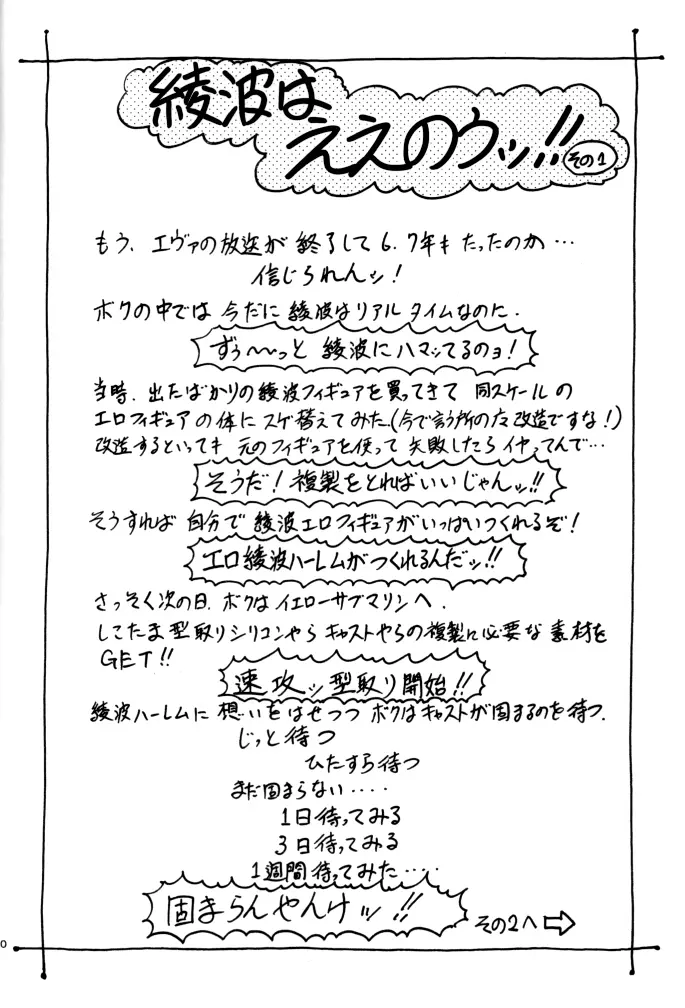 綾波は
ええのウッ!!
その1
もう、エヴァの放送が終了して6.7年もたったのか…
信じられんッ!
ボクの中では今だに綾波はリアルタイムなのに.
ずぅ〜〜っと 綾波にハマッてるのョ!
当時.出たばかりの綾波フィギュアを買ってきて 同スケールの
エロフィギュアの体にスゲ替えてみた.(今で言う所の左改造ですな!)
改造するといっても 元のフィギュアを使って 失敗したらイヤってんで…
そうだ!複製をとればいいじゃんッ!!
そうすれば 自分で 綾波エロフィギュアがいっぱいつくれるぞ!
エロ綾波ハーレムがつくれるんだッ!!
さっそく次の日.ボクはイエローサブマリンへ.
しこたま型取りシリコンやらキャストやらの複製に必要な素材を
GET!!
速攻ッ型取り開始!!
綾波ハーレムに想いをはせつつ ボクはキャストが固まるのを待つ.
じっと待つ
ひたすら待つ
まだ固まらない‥‥
1日待ってみる
3日待ってみる
1週間待ってみた‥‥
固まらんやんけッ!!
その2へ⇨
0